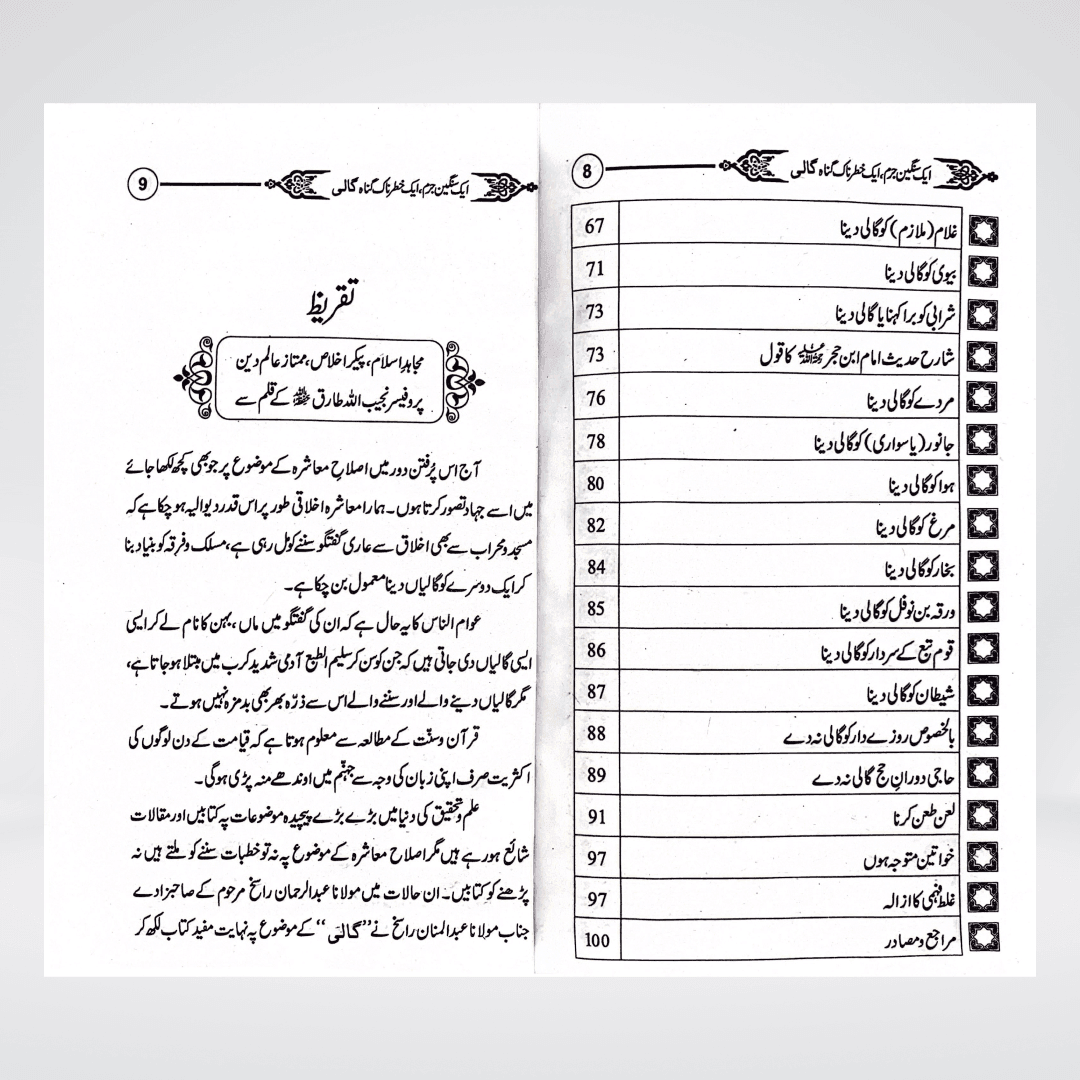 ایک سنگین جرم، ایک خطرناک گناہ گالی 8
غلام (ملازم) کو گالی دینا 67
بیوی کو گالی دینا 71
شرابی کو برا کہنا یا گالی دینا 73
شارح حدیث امام ابن حجر رحمہ اللہ کا قول 73
مردے کو گالی دینا 76
جانور (یا سواری) کو گالی دینا 78
ہوا کو گالی دینا 80
مرغ کو گالی دینا 82
بخار کو گالی دینا 84
ورقہ بن نوفل کو گالی دینا 85
قوم تبع کے سردار کو گالی دینا 86
شیطان کو گالی دینا 87
بالخصوص روزے دار کو گالی نہ دے 88
حاجی دورانِ حج گالی نہ دے 89
لعن طعن کرنا 91
خواتین متوجہ ہوں 97
غلط فہمی کا ازالہ 97
مراجع و مصادر 100
ایک سنگین جرم، ایک خطرناک گناہ گالی 9
تقریظ
مجاہدِ اسلام، پیکرِ اخلاص، ممتاز عالم دین
پروفیسر نجیب اللہ طارق حفظہ اللہ کے قلم سے
آج اس پُرفتن دور میں اصلاحِ معاشرہ کے موضوع پر جو بھی کچھ لکھا جائے
میں اسے جہاد تصور کرتا ہوں۔ ہمارا معاشرہ اخلاقی طور پر اس قدر دیوالیہ ہو چکا ہے کہ
مسجد و محراب سے بھی اخلاق سے عاری گفتگو سننے کو مل رہی ہے، مسلک و فرقہ کو بنیاد بنا
کر ایک دوسرے کو گالیاں دینا معمول بن چکا ہے۔
عوام الناس کا یہ حال ہے کہ ان کی گفتگو میں ماں، بہن کا نام لے کر ایسی
ایسی گالیاں دی جاتی ہیں کہ جن کو سن کر سلیم الطبع آدمی شدید کرب میں مبتلا ہو جاتا ہے،
مگر گالیاں دینے والے اور سننے والے اس سے ذرّہ بھر بھی بدمزہ نہیں ہوتے۔
قرآن و سنّت کے مطالعہ سے معلوم ہوتا ہے کہ قیامت کے دن لوگوں کی
اکثریت صرف اپنی زبان کی وجہ سے جہنّم میں اوندھے منہ پڑی ہوگی۔
علم و تحقیق کی دنیا میں بڑے بڑے پیچیدہ موضوعات پہ کتابیں اور مقالات
شائع ہو رہے ہیں مگر اصلاح معاشرہ کے موضوع پہ نہ تو خطبات سننے کو ملتے ہیں نہ
پڑھنے کو کتابیں۔ ان حالات میں مولانا عبدالرحمان راسخ مرحوم کے صاحبزادے
جناب مولانا عبدالمنان راسخ نے ’’گالی‘‘ کے موضوع پہ نہایت مفید کتاب لکھ کر